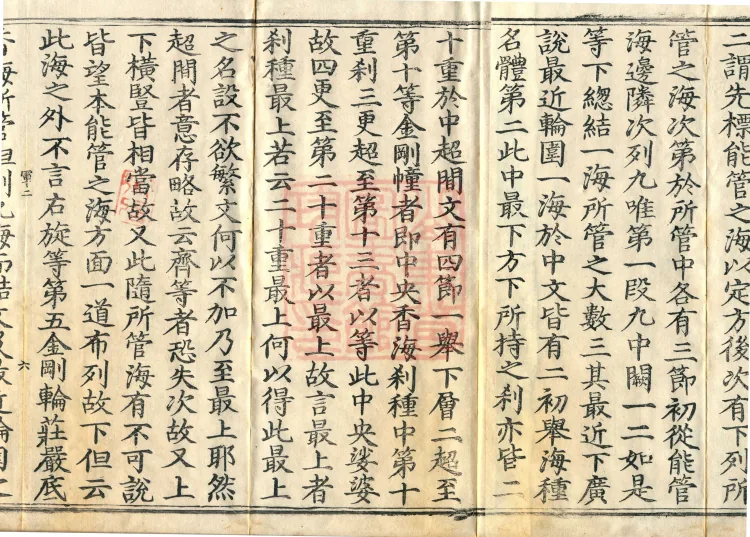 二謂先標能管之海以定方後次有下列所
管之海次第於所管中各有三節初從能管
海邊隣次列九唯第一段九中闕一二如是
等下總結一海所管之大數三其最近下廣
說最近輪圍一海於中文皆有二初舉海種
名體第二此中最下方下所持之刹亦皆二
十重於中超間文有四節一舉下層二超至
第十等金剛幢者即中央香海刹種中第十
重刹三更超至第十三者以等此中央娑婆
故四更至第二十重者以最上故言最上者
刹種最上若云二十重最上何以得此最上
之名設不欲繁文何以不加乃至最上耶然
超間者意存略故云齊等者恐失次故又上
下橫豎皆相當故又此隨所管海有不可說
皆望本能管之海方面一道布列故下但云
此海之外不言右旋等第五金剛輪莊嚴底
軍二
六